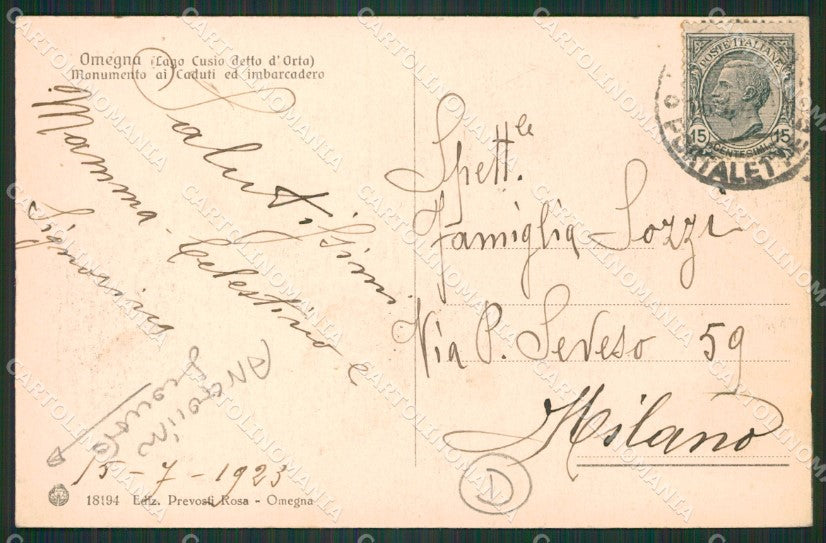 Omegna (Lago Cusio detto d'Orta)
Monumento ai Caduti ed imbarcadero
Salutissimi
Mamma - Celestino e
Signorina
15-7-1923
18194 Ediz. Prevosti Rosa - Omegna
POSTE ITALIANE
15 15
CENTESIMI
PORTALET
Spett.le
Famiglia Sozzi
Via P. Seveso 59
Milano
D
CARTOLINOMANIA